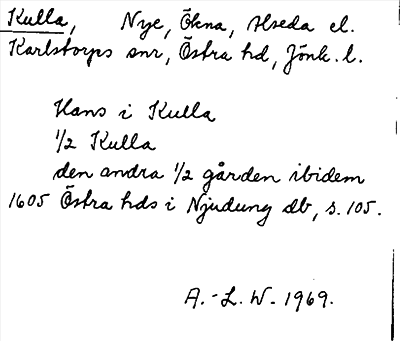 Kulla, Nye, Ökna, Alseda el.
Karlstorps snr, Östra hd, Jönk. l.
Hans i Kulla
1/2 Kulla
den andra 1/2 gården ibidem
1605 Östra hds i Njudung db, s. 105.
A.-L. W. 1969.